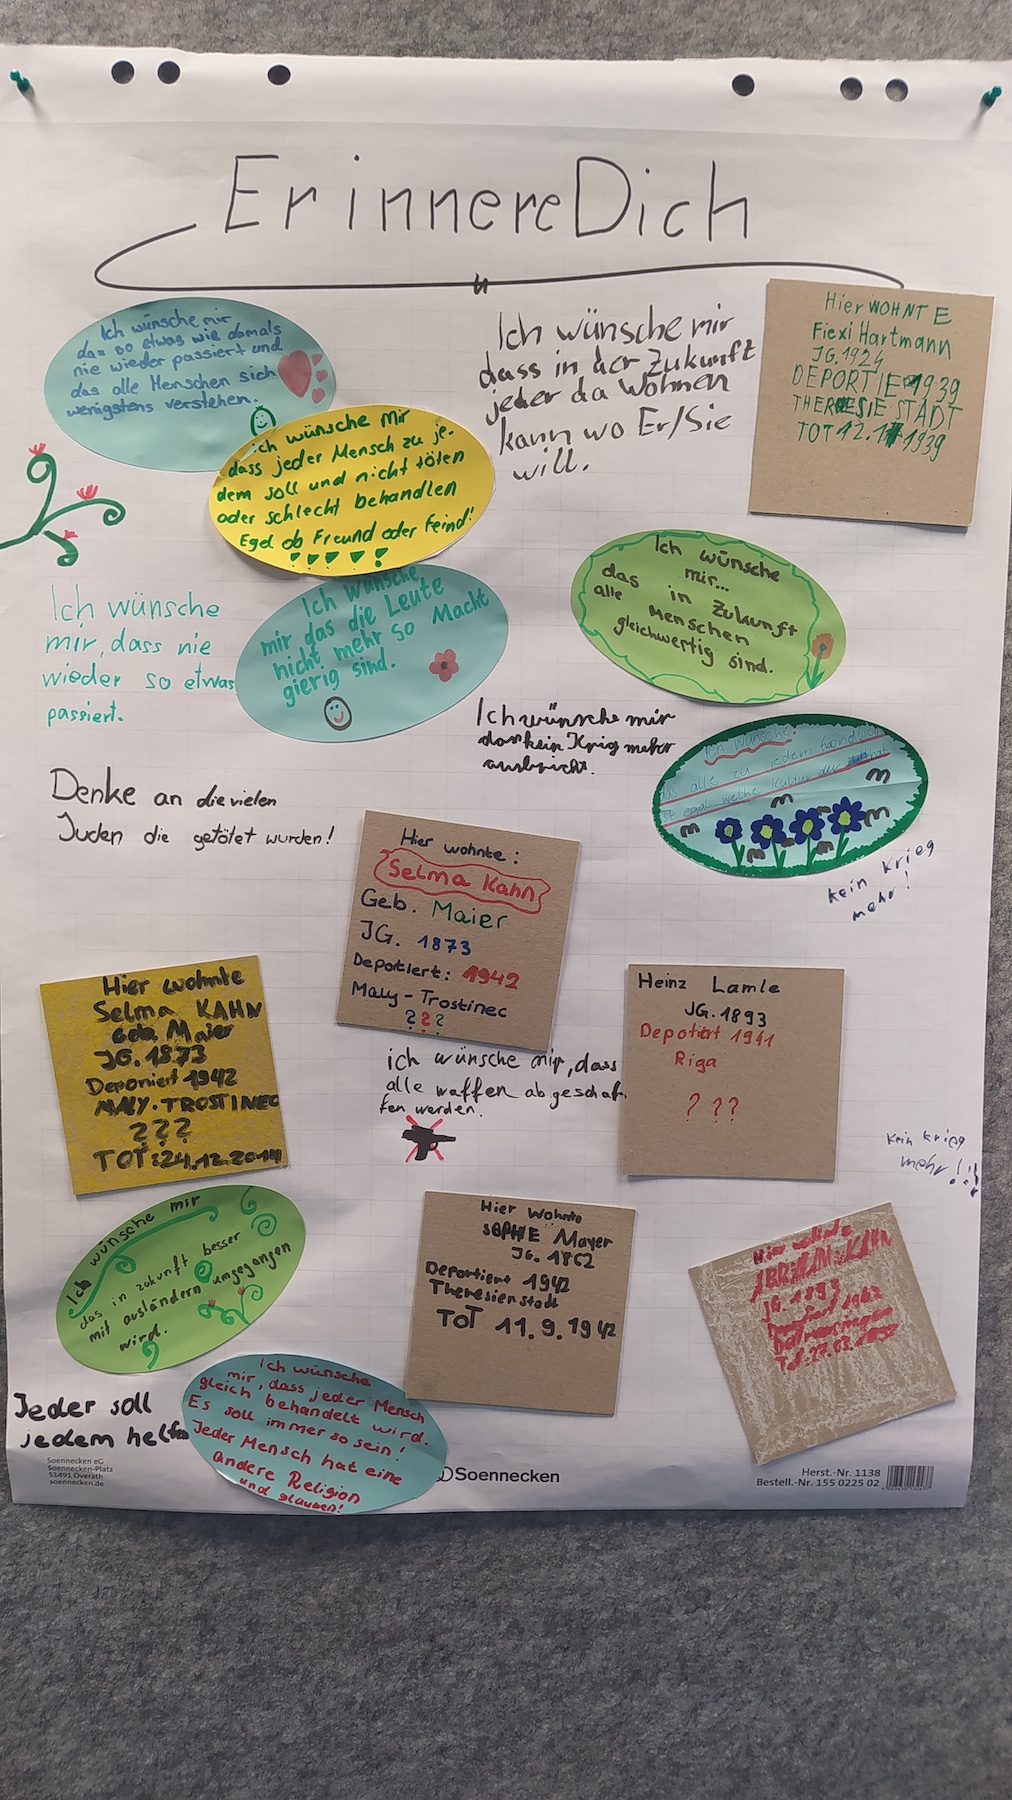 ErinnereDich
Ich wünsche mir
das so etwas wie damals
nie wieder passiert und
das alle Menschen sich
wenigstens verstehen.
ich wünsche mir
dass jeder Mensch zu je-
dem soll und nicht töten
oder schlecht behandlen
Egal ob Freund oder Feind!
Ich wünsche mir
dass in der Zukunft
jeder da wohnen
kann wo Er/Sie
will.
Hier WOHNTE
Flexi Hartmann
JG.1924
DEPORTIE 1939
THERESIE STADT
TOT 12.11 1939
Ich wünsche
mir, dass nie
wieder so etwas
passiert.
Ich wünsche
mir das die Leute
nicht mehr so Macht
gierig sind.
Ich wünsche
mir...
das in Zukunft
alle Menschen
gleichwertig sind.
Ich wünsche mir
das kein Krig meher
ausbricht.
Ich wünsche:
das alle zu jedem
ist egal welche Kultur der hat
kein krieg
mehr!
Denke an die vielen
Juden die getötet wurden!
Hier wohnte:
Selma Kahn
Geb. Maier
JG. 1873
Deportiert: 1942
Maly-Trostinec
???
Hier wohnte
Selma KAHN
Geb. Maier
JG. 1873
Deporiert 1942
MALY.TROSTINEC
???
TOT:24.12.2014
Heinz Lamle
JG.1893
Depotiert 1941
Riga
? ??
ich wünsche mir, dass
alle waffen abgeschaf-
fen werden.
kein krieg
mehr!!
Ich wünsche mir
das in zukunft besser
mit ausländern umgegangen
wird.
Hier Wohnte
SOPHIE Mayer
JG. 1862
Deportiert 1942
Theresienstadt
TOT 11.9.1942
Hier wohnte
KAHN
JG. 1893
1942
Jeder soll
jedem helfen
Ich wünsche
mir, dass jeder Mensch
gleich behandelt wird.
Es soll immer so sein!
Jeder Mensch hat eine
andere Religion
und glauben!
Soennecken eG
Soennecken-Platz
51491 Overath
soennecken.de
Soennecken
Herst.-Nr. 1138
Bestell.-Nr. 155 0225 02